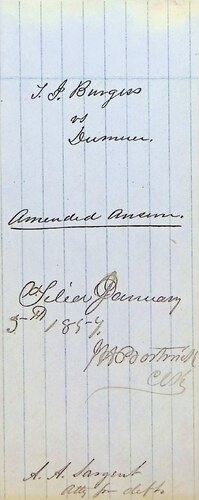 T. J. Burgess
vs
Dumeen.
Amended Answer.
Filed January
5th 1857.
Clk
A. A. Sargent
Atty for defts.